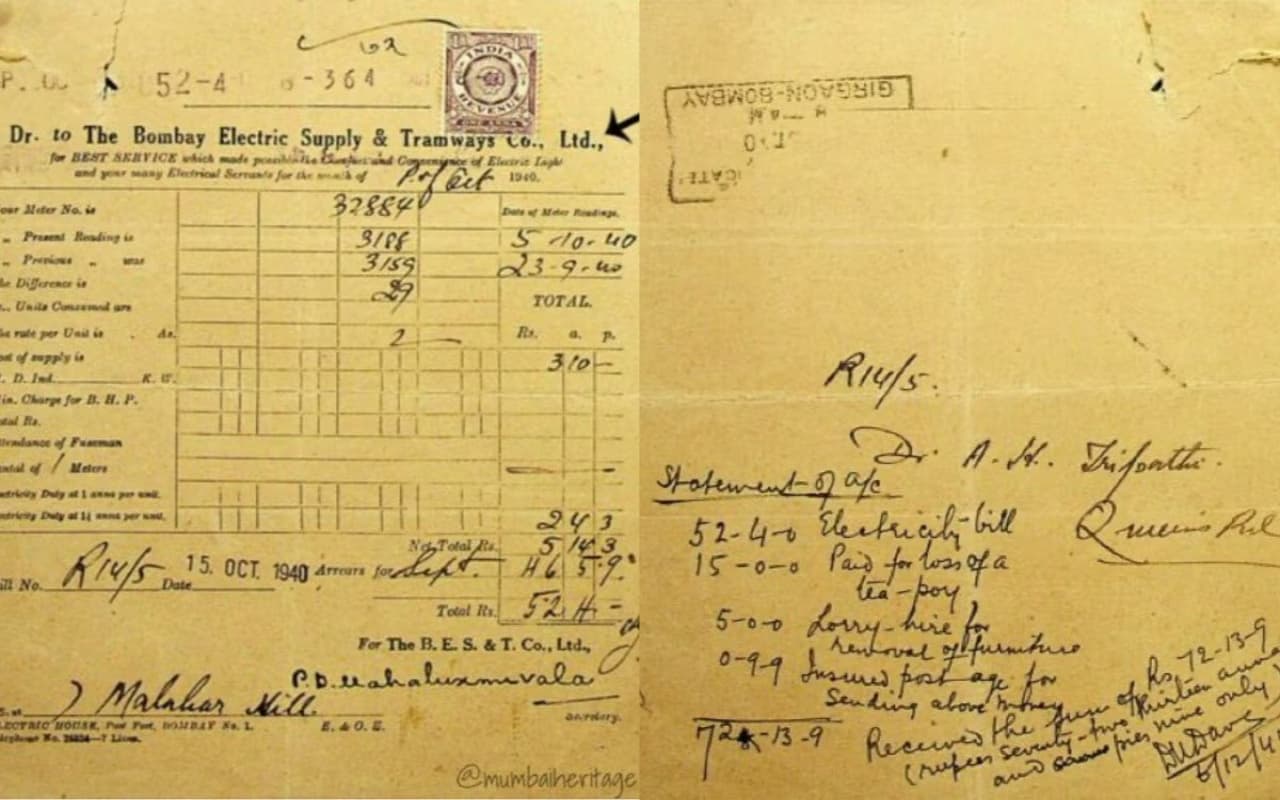 52-4
-364
INDIA
REVENUE
ONE ANNA
Dr. to The Bombay Electric Supply & Tramways Co., Ltd.,
for BEST SERVICE which made possible the Comfort and Convenience of Electric Light
and your many Electrical Servants for the month of P. of Oct 1940.
our Meter No. is 32884 Date of Meter Readings.
„ Present Reading is 3188 5-10-40
„ Previous „ was 3159 23-9-40
he Difference is 29
Units Consumed are TOTAL.
he rate per Unit is As. 2 Rs. a. p.
ost of supply is 3 10 -
. D. Ind. K. W.
in. Charge for B. H. P.
otal Rs.
ttendance of Fuseman
ental of 1 Meters
ectricity Duty at 1 anna per unit.
ectricity Duty at 1¼ annas per unit. 2 4 3
Net Total Rs. 5 14 3
ill No. R14/5 Date 15. OCT. 1940 Arrears for Sept. 46 5 9
Total Rs. 52 4 -
For The B. E. S. & T. Co., Ltd.,
P.D. Mahaluxmivala
Malabar Hill.
Secretary.
LECTRIC HOUSE, Post Fort, BOMBAY No. 1. E. & O. E.
7 Lines.
@mumbaiheritage
GIRGAON-BOMBAY
R14/5.
Dr. A. K. Tripathi.
Statement of a/c
Queens Rd
52-4-0 Electricity bill
15-0-0 Paid for loss of a
tea-poy
5-0-0 Lorry-hire for
removal of furniture
0-9-9 Insured postage for
Sending above money
72-13-9
Received the sum of Rs. 72-13-9
(rupees seventy-two thirteen annas
and pies nine only
6/12/4